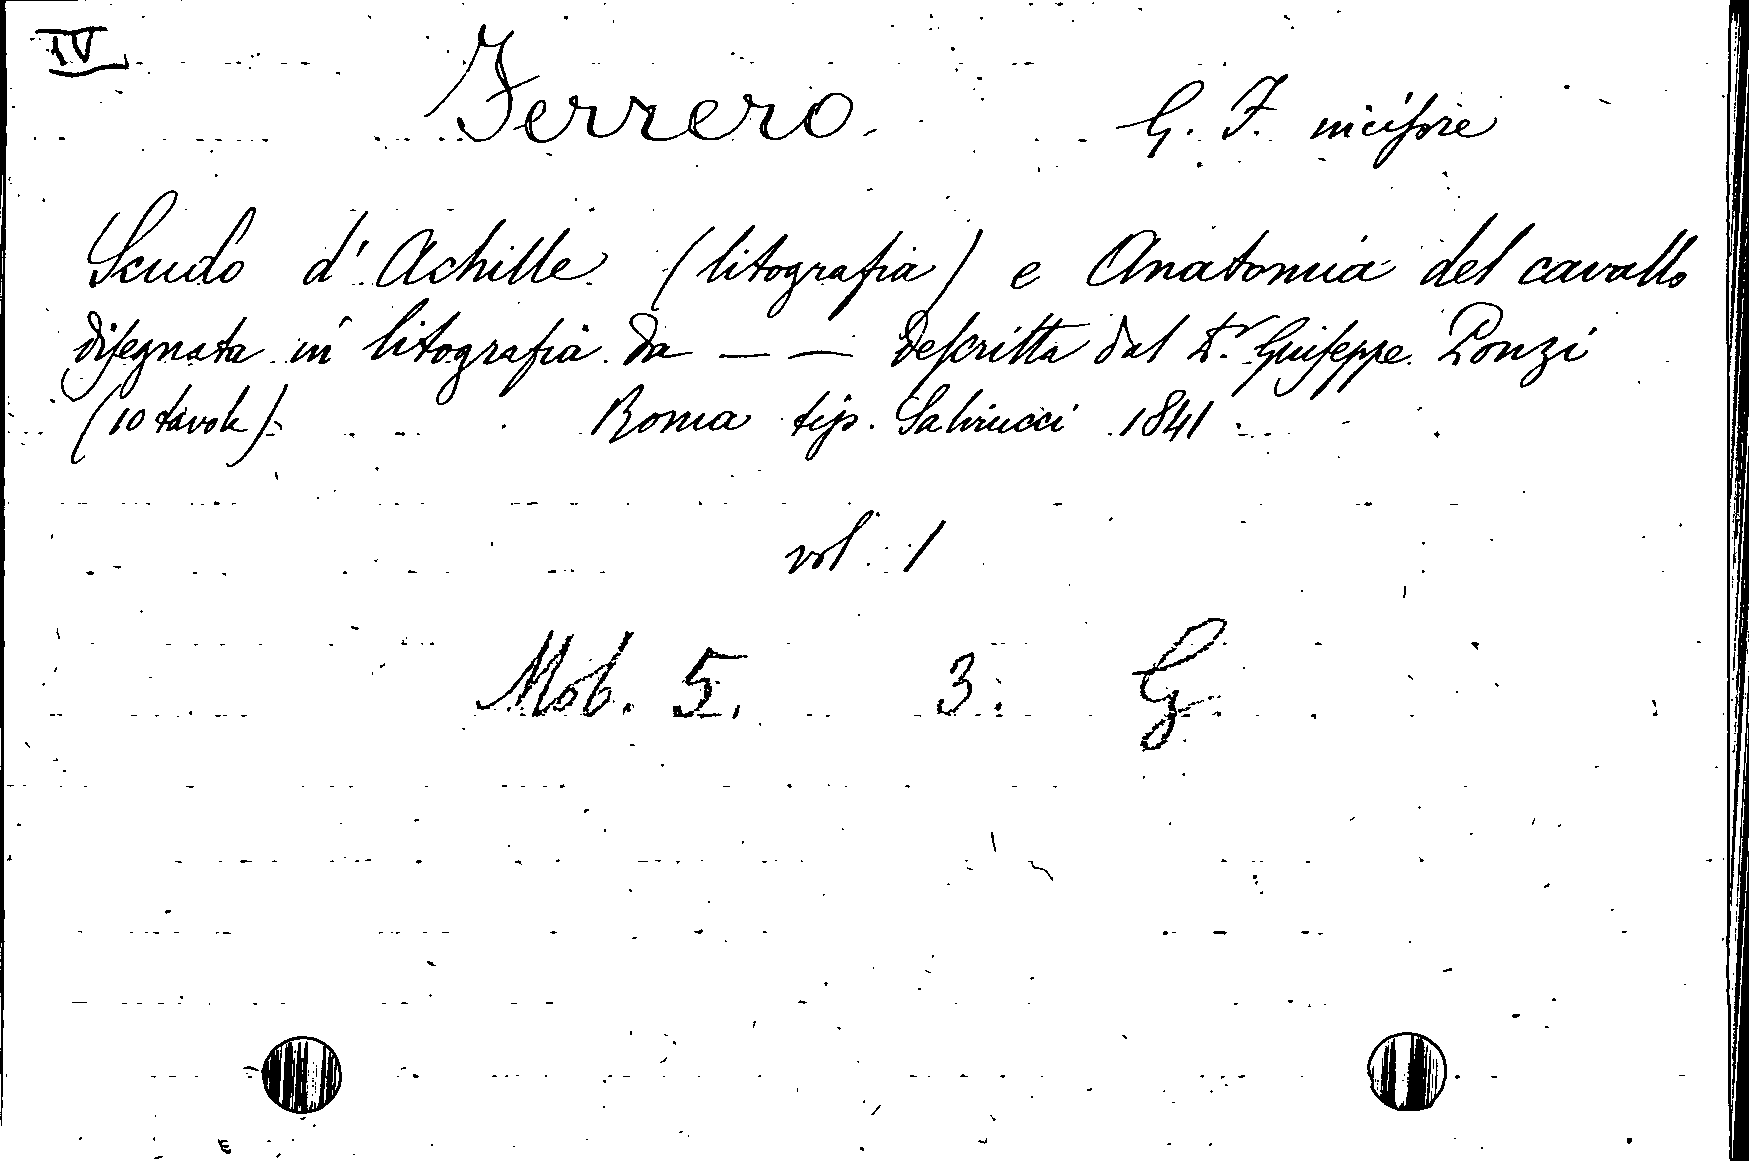 IV
Ferrero. G. F. incisore
Scudo d'Achille (litografia) e Anatomia del cavallo
disegnata in litografia da — — descritta dal Dr. Giuseppe Ponzi
(10 tavole) Roma tip. Salviucci 1841
vol 1
Mob. 5. 3. G